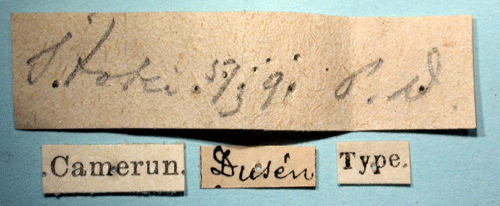 Itoki. 5/3 91 P. D.
.Camerun.
Dusén
Type.